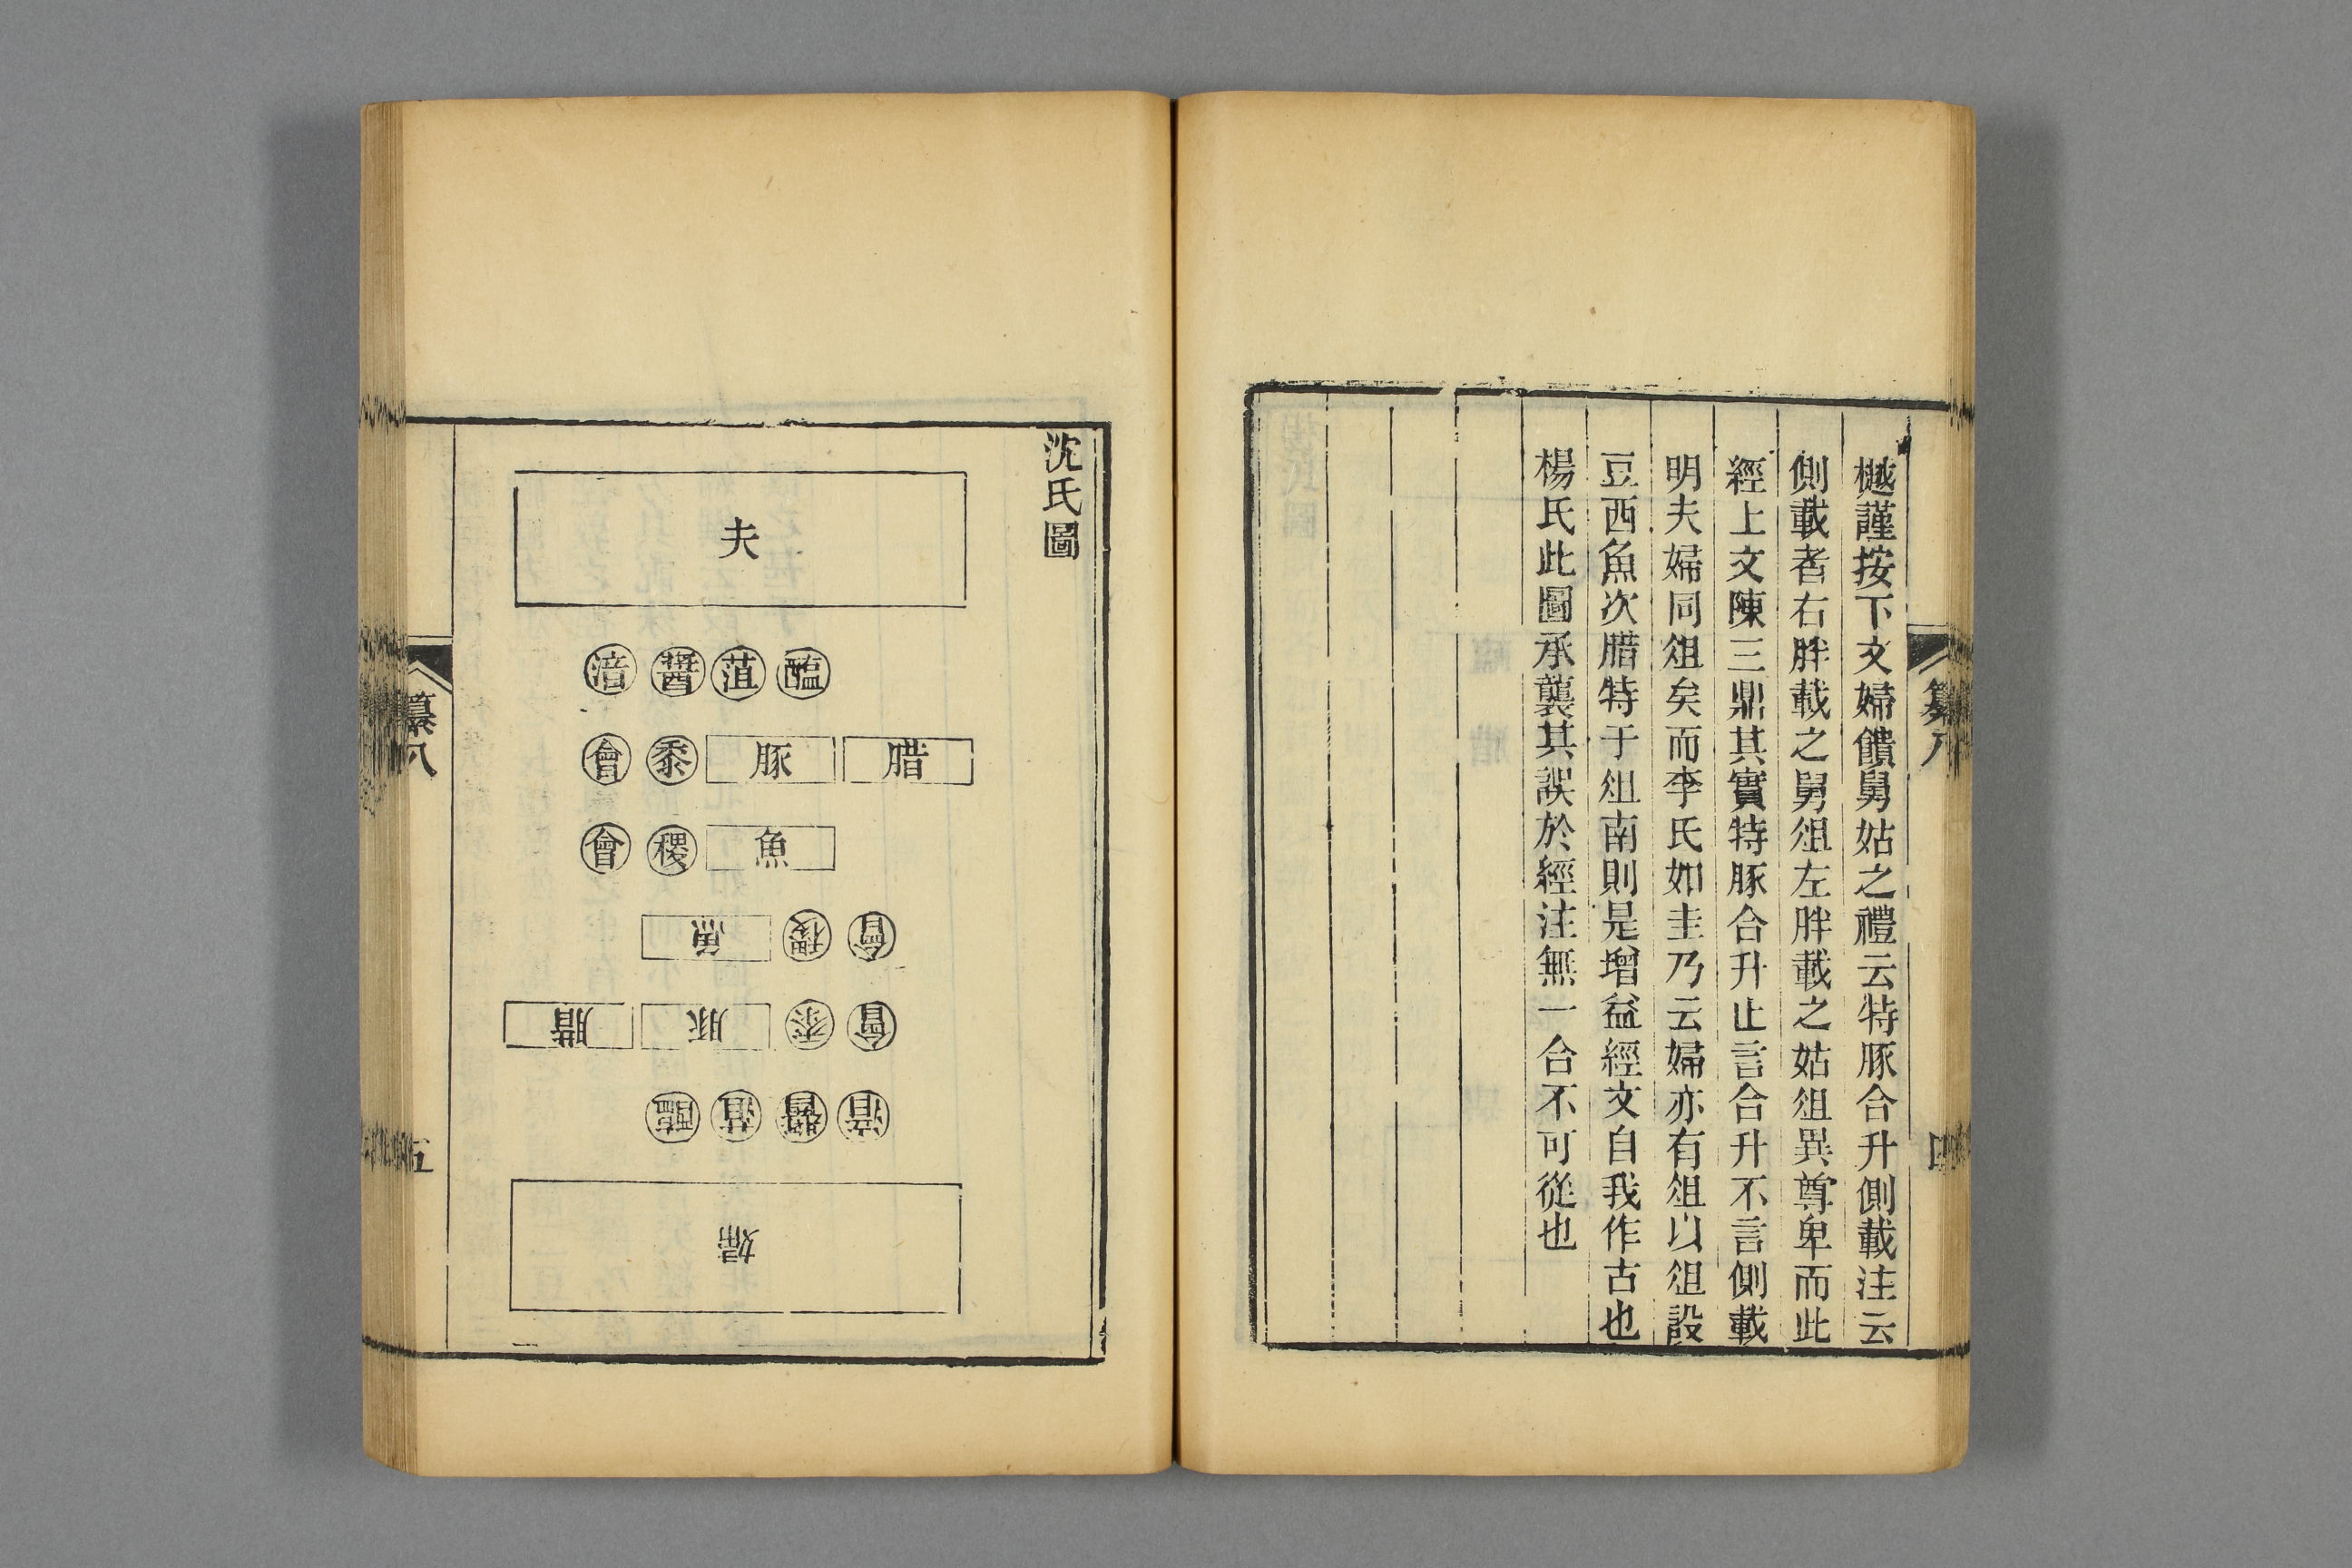 樾謹按下文婦饋舅姑之禮云特豚合升側載注云
側載者右胖載之舅俎左胖載之姑俎異尊卑而此
經上文陳三鼎其實特豚合升止言合升不言側載
明夫婦同俎矣而李氏如圭乃云婦亦有俎以俎設
豆西魚次腊特于俎南則是增益經文自我作古也
楊氏此圖承襲其誤於經注無一合不可從也
纂八
四
沈氏圖
夫
醢
菹
醬
湆
腊
豚
黍
會
魚
稷
會
魚
稷
會
腊
豚
黍
會
醢
菹
醬
湆
婦
纂八
五